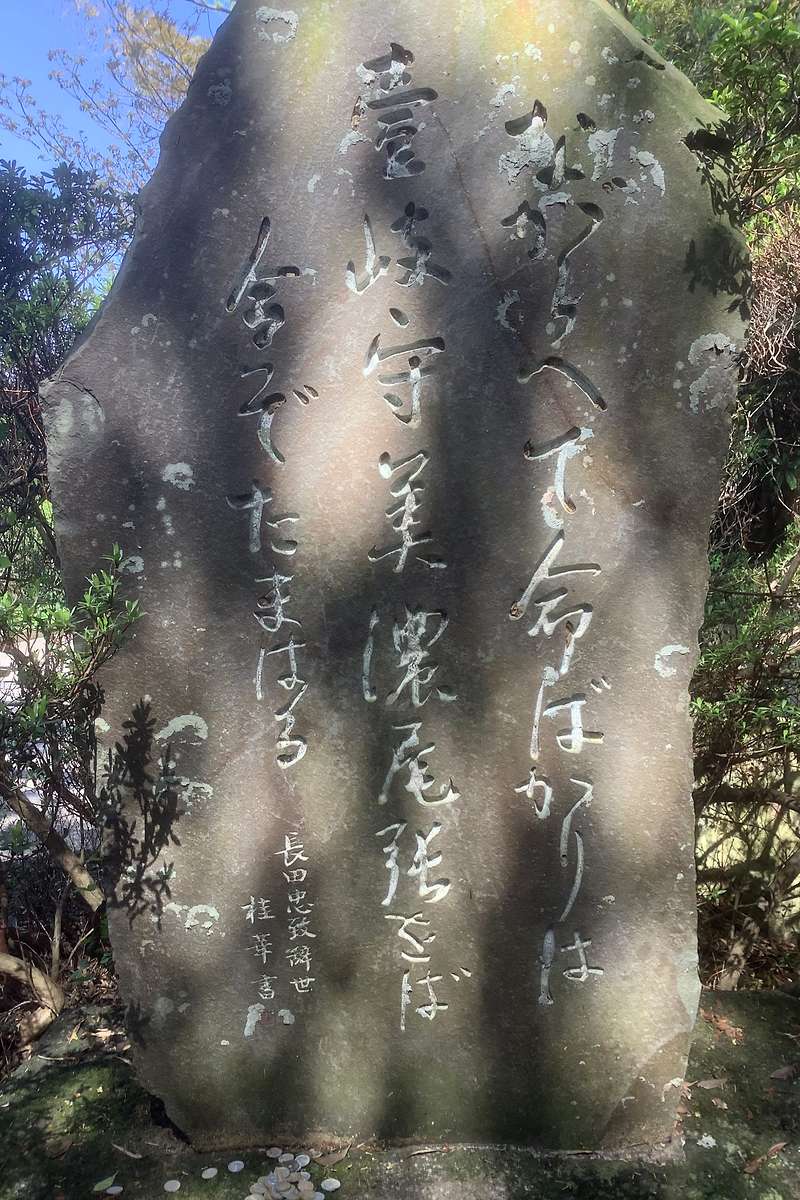 ながらへて命ばかりは
壹岐守美濃尾張をば
今ぞたまはる
長田忠致辭世
桂華書